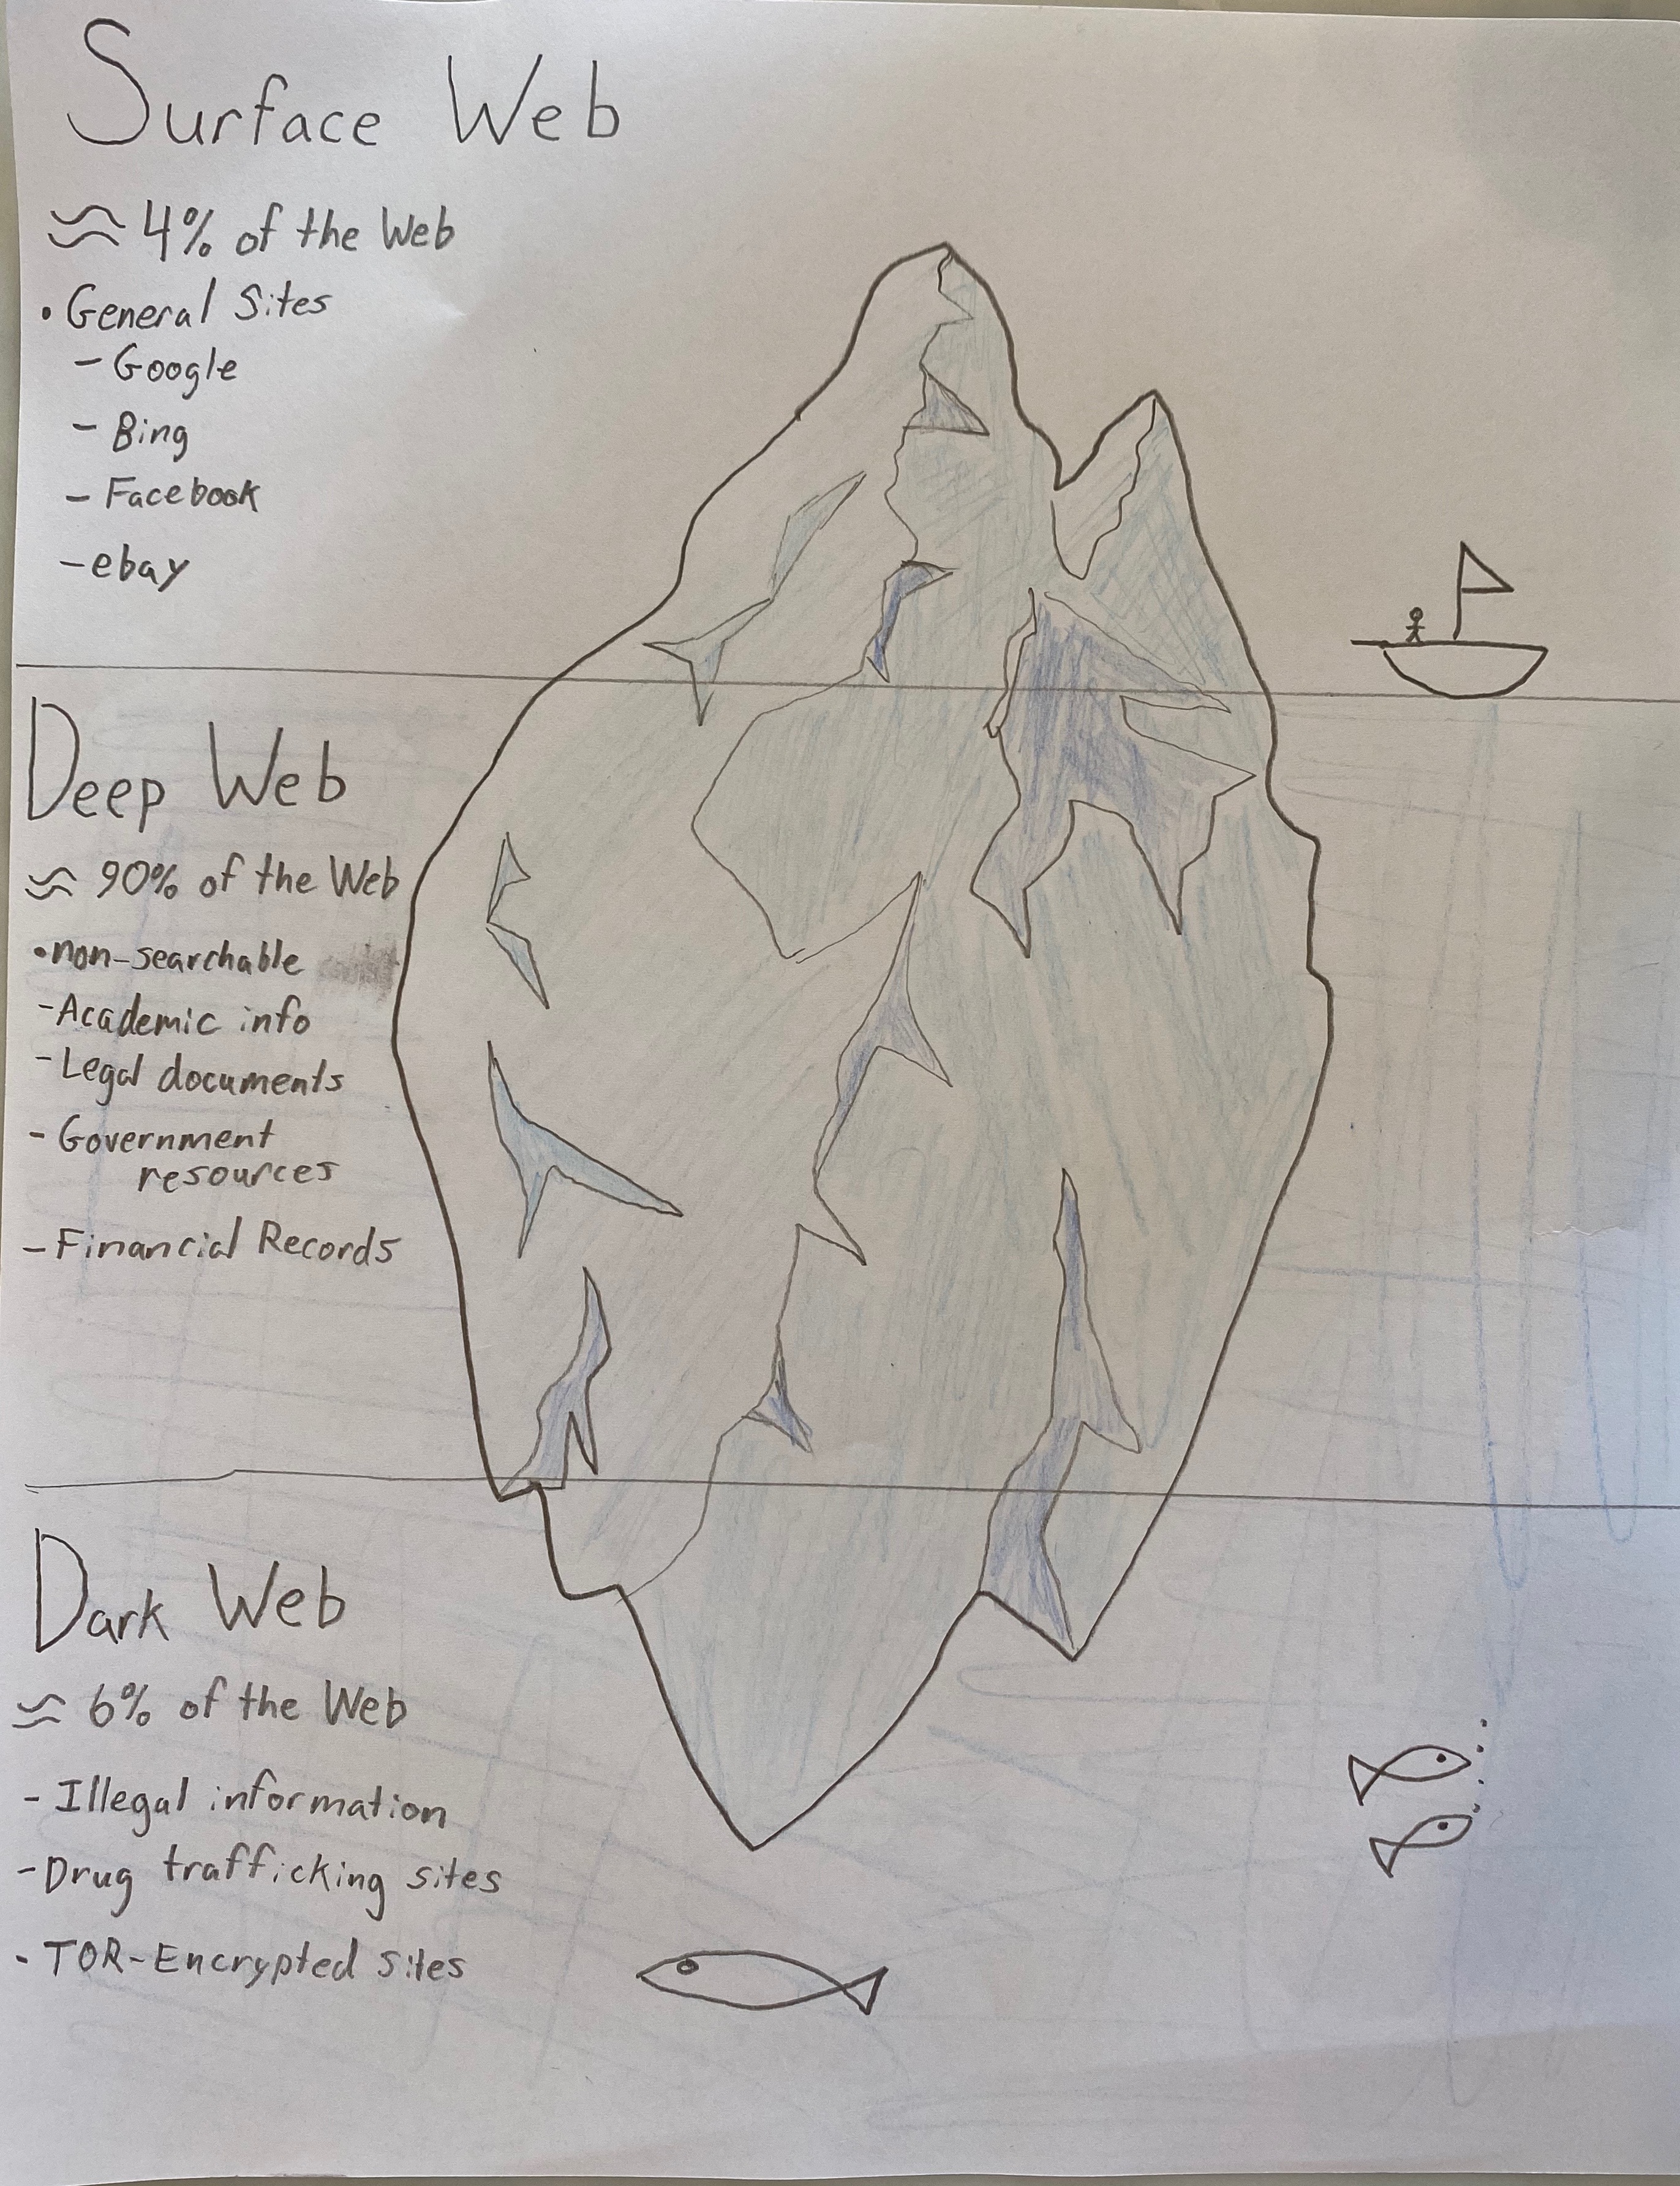 Surface Web
≈ 4% of the Web
• General Sites
- Google
- Bing
- Facebook
- ebay
Deep Web
≈ 90% of the Web
• non-searchable
- Academic info
- Legal documents
- Government
resources
- Financial Records
Dark Web
≈ 6% of the Web
- Illegal information
- Drug trafficking sites
- TOR-Encrypted sites